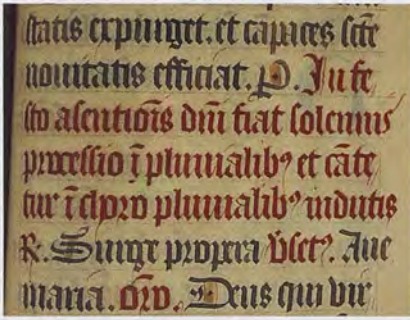 statis expurget. et capaces scte
nouitatis efficiat. P. In fe
sto asentiois dni fiat solennis
processio i pluuialibꝰ et cate
tur i choro pluuialibꝰ indutis
R. Surge propera Vset. Aue
maria. oro. Deus qui vir